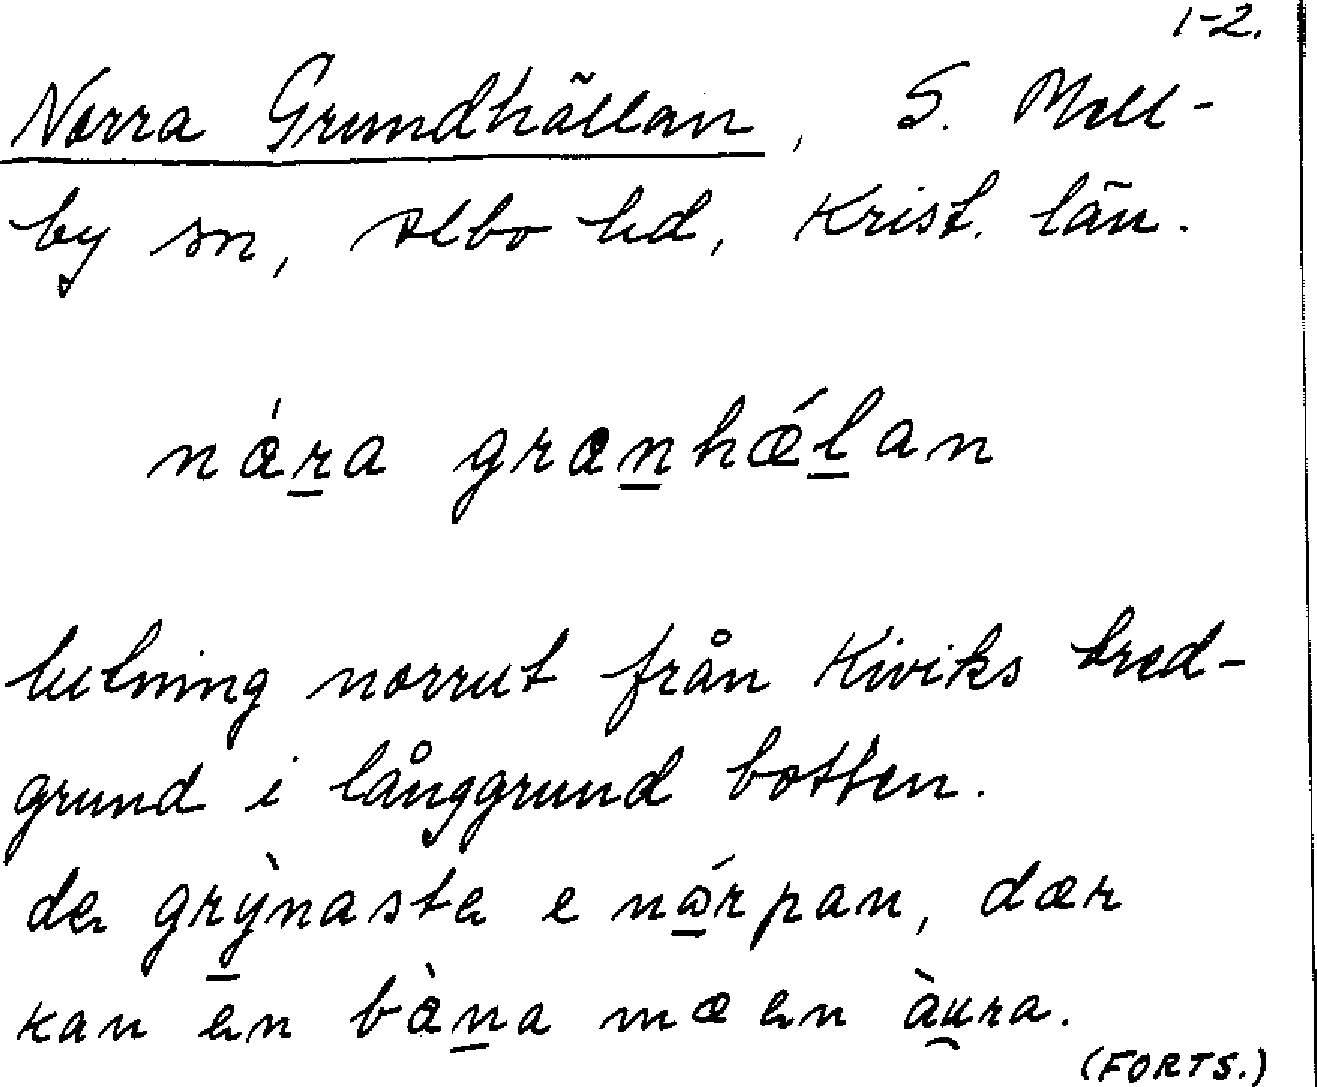 1-2.
Norra Grundhällan, S. Mell-
by sn, Albo hd, Krist. län.
nára granhǽlan
lutning norrut från Kiviks bred-
grund i långgrund botten.
de grỳnaste e nárpan, dær
kan en bàna mæ en àura.
(FORTS.)